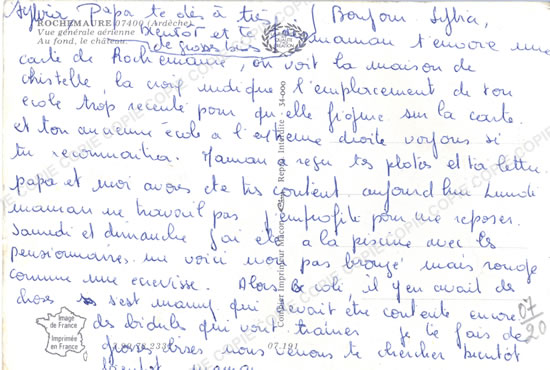 Sylvia Papa te dès à très
bientôt et te
de gros bisous
ROCHEMAURE 07400 (Ardèche)
Vue générale aérienne
Au fond, le château
Bonjour Sylvia,
maman t'envoie une
carte de Rochemaure, on voit la maison de
christelle, la croix indique l'emplacement de ton
école trop recente pour qu'elle figure sur la carte
et ton ancienne école a l'extreme droite voyons si
tu reconnaitra. Maman a reçu tes photos et ta lettre
papa et moi avons ete très content, aujourd'hui Lundi
maman ne travail pas j'emprofite pour me reposer.
Samedi et dimanche j'ai ete a la piscine avec les
pensionnaires me voici non pas bronzé mais rouge
comme une ecrevisse. Alors le coli, il y en avait des
choses c'est mamy qui avait être contente encore
des bidules qui vont trainer je te fais de
grosses bises nous venons te chercher bientôt
Combier Imprimeur Macon
34-000
Image
de France
Imprimée
en France
07.191
07
20
COPIE COPIE COPIE COPIE